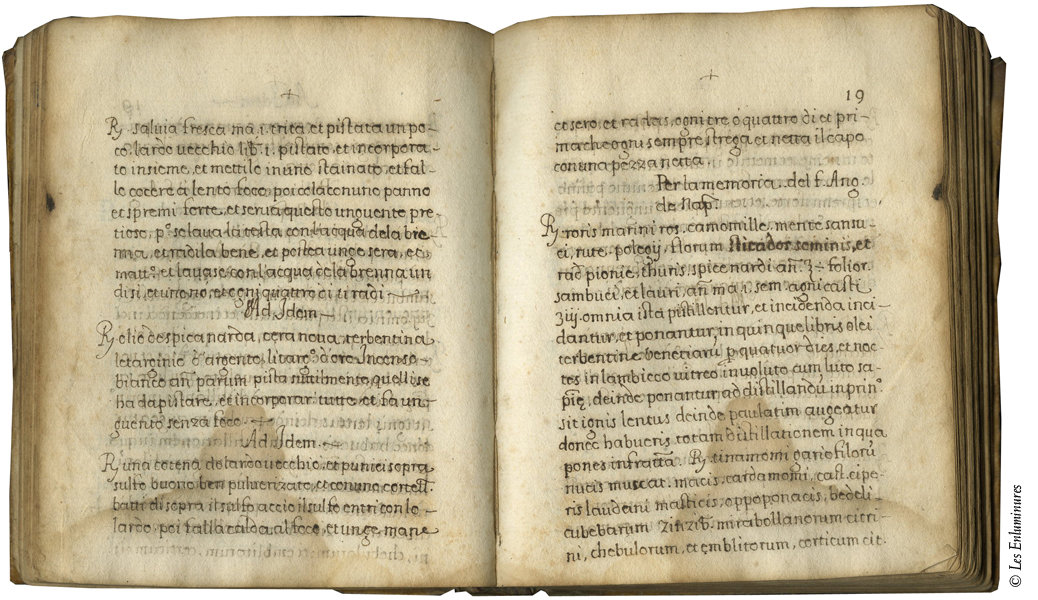 +
℞ saluia fresca ma. i. trita, et pistata un po-
co, lardo uecchio lib. i. pistato, et incorpora-
to insieme, et mettilo in uno stainato, et fal-
lo cocere a lento foco, poi cola con uno panno
et spremi forte, et serua questo unguente pre-
tioso, po. se laua la testa con l'acqua de la bre-
nna, et radila bene, et postea unge sera, et
matt. et lauase con l'acqua de la brenna un
di si, et uno no, et ogni quattro di ti radi
Ad Idem
℞ olio de spica narda, cera noua, terbentina
letarginio d'argento, litargo. d'oro Incenso
bianco an. parum pista sutilmente, quelli se
ha da pistare, et incorporar tutto, et fa un-
guento senza foco.
Ad Idem.
℞ una cotena de lardo uecchio, et punici sopra
sulfo buono ben puluerizato, et con uno cortell.
batti di sopra il sulfo accio il sulfo entri con lo
lardo, poi falla calda al foco, et unge, mane
+
19
et sero, et radas, ogni tre o quattro di et pri-
ma che ogni sempre strega et netta il capo
con una pezza netta.
Per la memoria. del f. Ang.
de Nap.
℞ roris marini ros. camomille, mente sansu-
ci, rute, polegij, florum sticados seminis, et
rad pionie, thuris, spice nardi an. ʒ folior.
sambuci, et lauri, an ma. i. sem. agni casti
ʒiij. omnia ista pistillentur, et incidenda inci-
dantur, et ponantur, in quinque libris olei
terbentine venetiaru p quatuor dies, et noc-
tes in lambicco uitreo inuoluto cum luto sa-
pie, deinde ponantur ad distillandu in prin.
sit ignis lentus deinde paulatim augeatur
donec habueris totam distillationem in qua
pones infratta. ℞ cinamomi gariofiloru
nucis muscat. macis, cardamomi, cast. cipe-
ris laudani masticis, oppoponacis, bedelli
cubebarum zinzib. mirabollanorum citri-
ni, chebulorum, et emblitorum, corticum cit.
© Les Enluminures